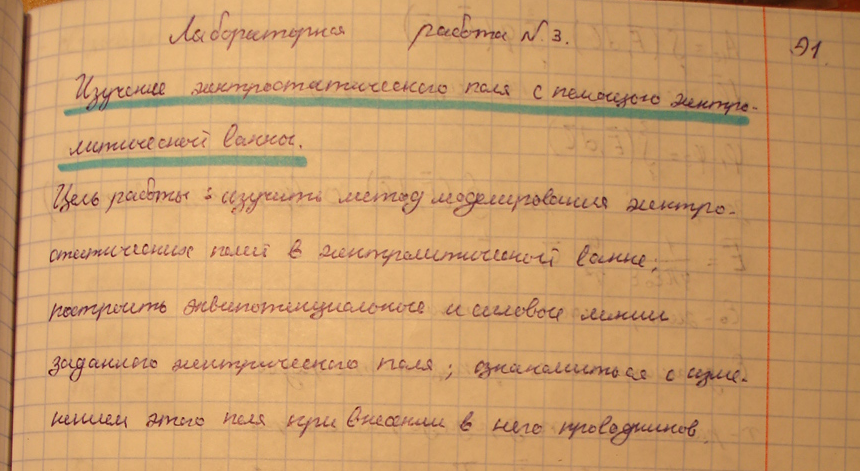 Лабораторная работа N. 3.
Э1.
Изучение электростатического поля с помощью электро-
литической ванны.
Цель работы: изучить метод моделирования электро-
статических полей в электролитической ванне;
построить эквипотенциальные и силовые линии
заданного электрического поля; ознакомиться с изме-
нением этого поля при внесении в него проводников.